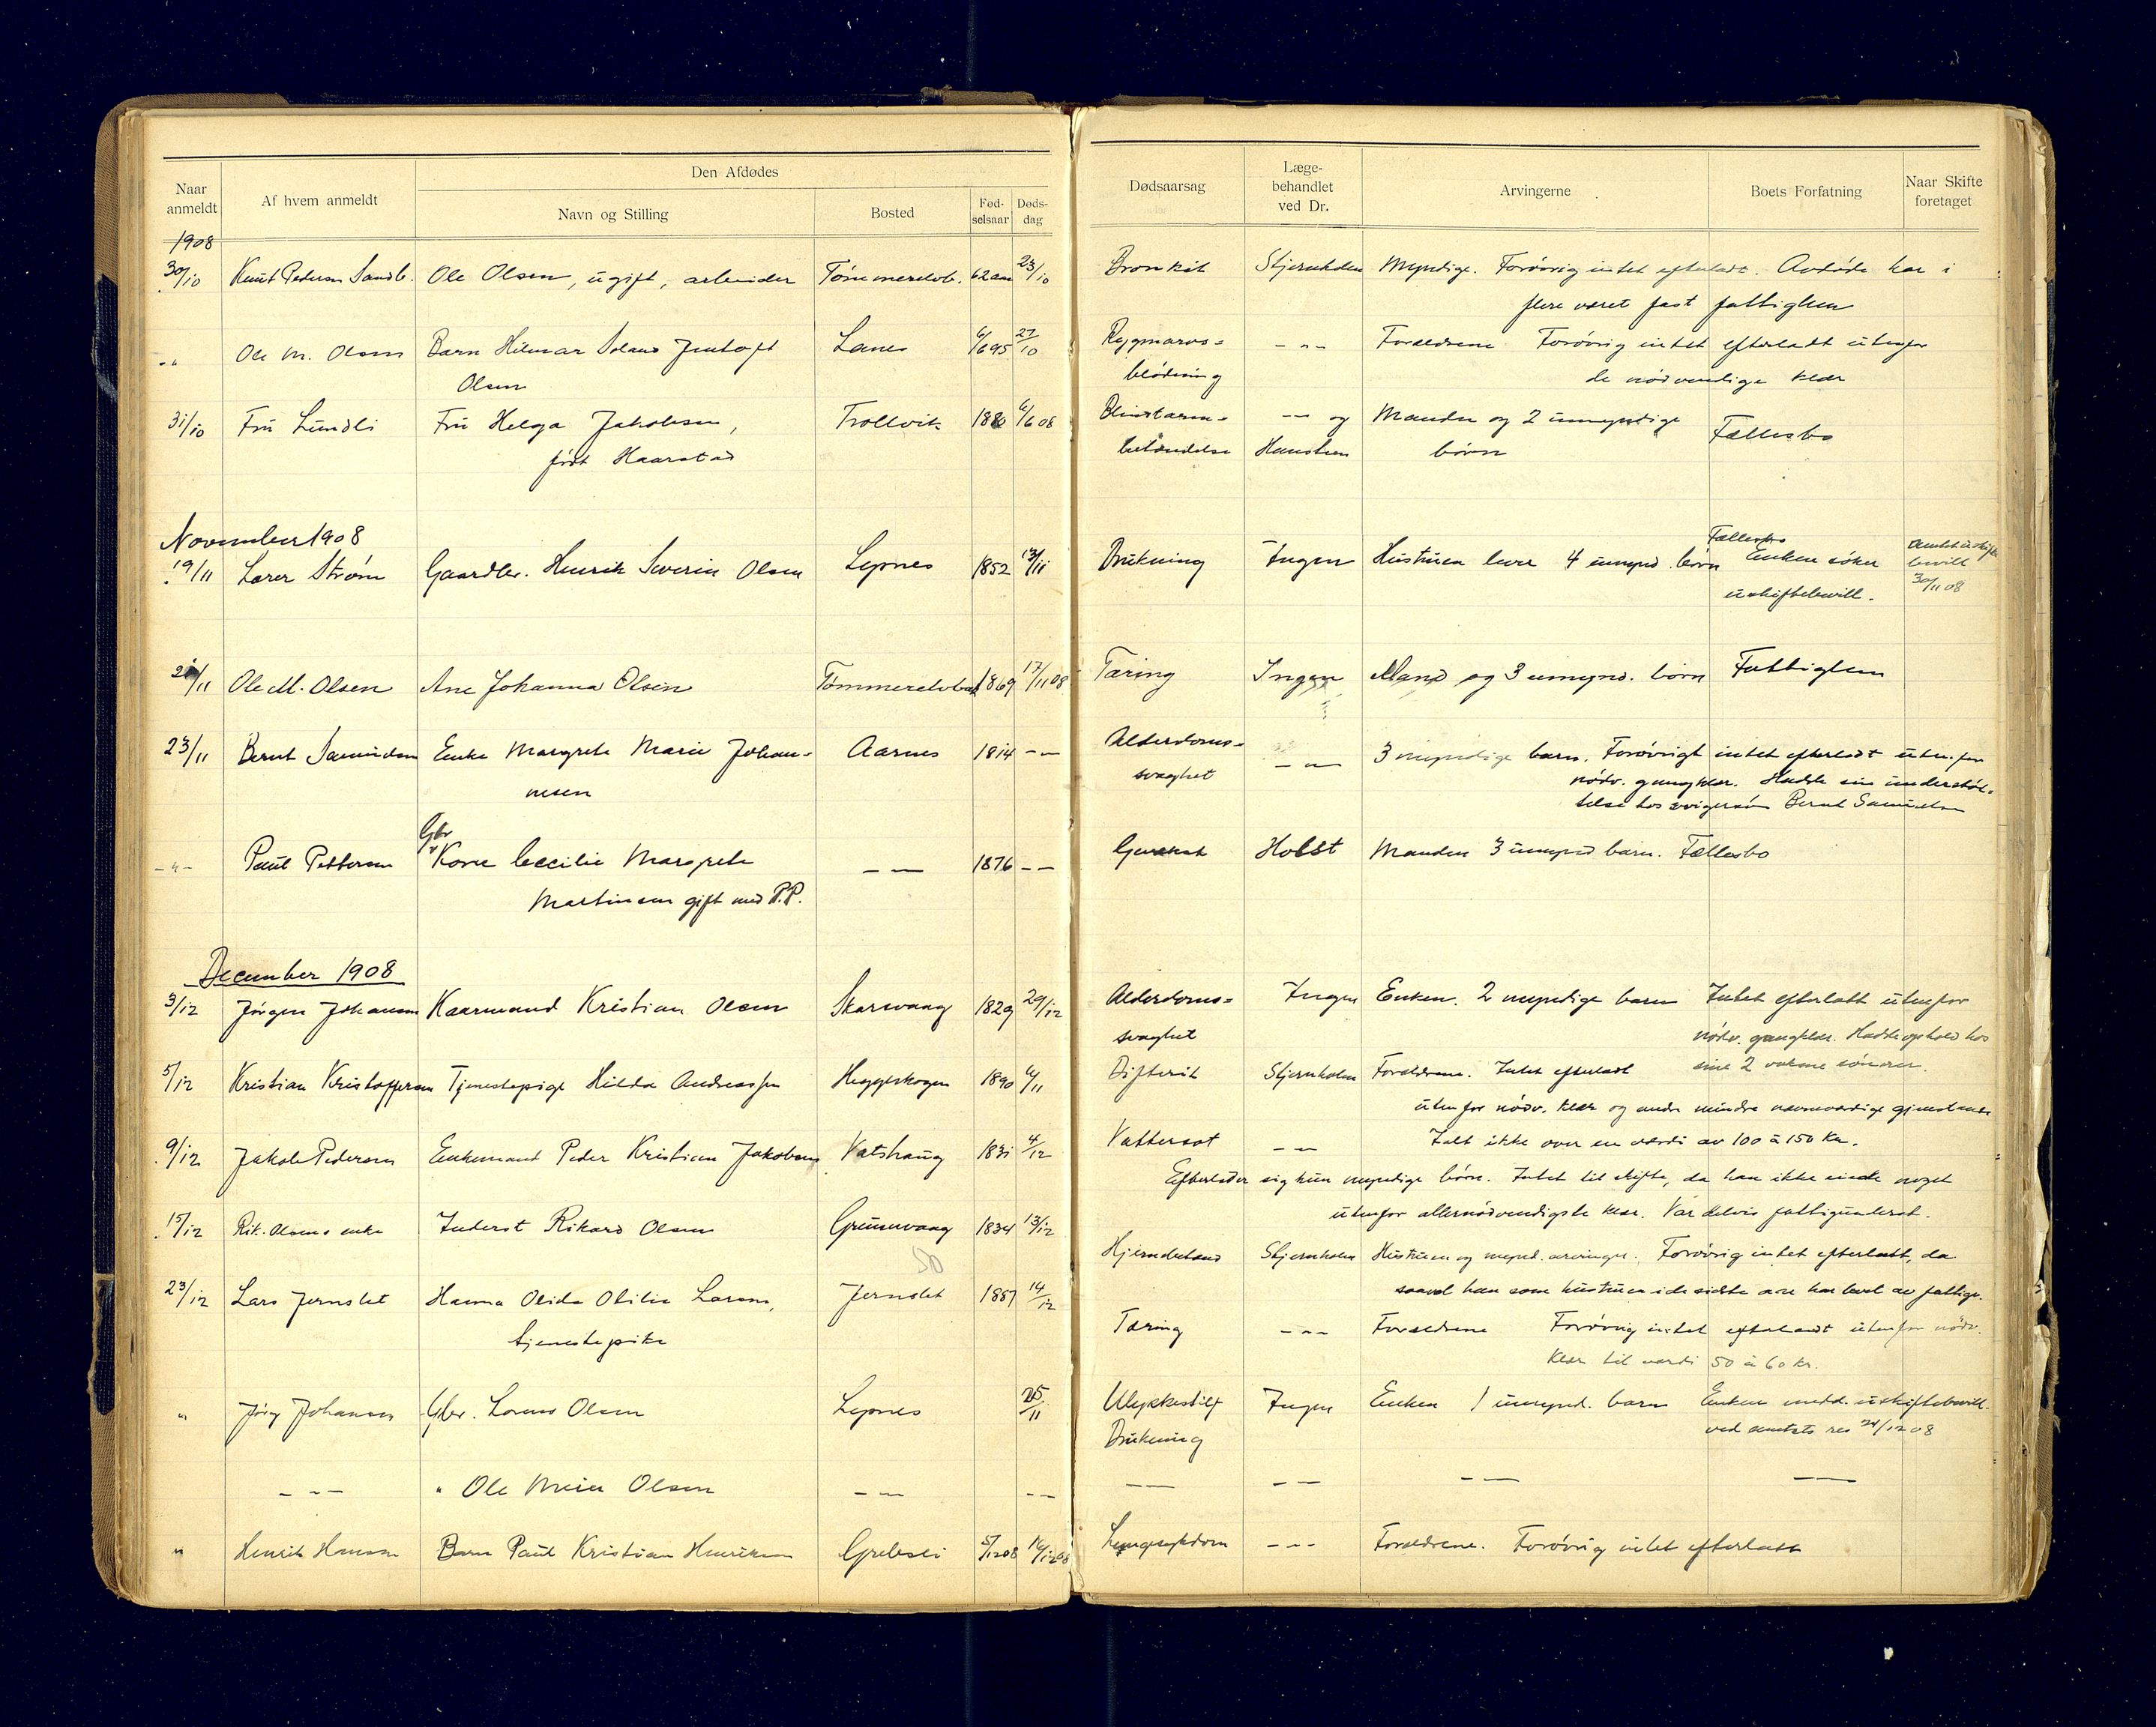 Naar anmeldt
Af hvem anmeldt
Den Afdødes
Navn og Stilling
Bosted
Fød-selsaar
Døds-dag
Dødsaarsag
Læge-behandlet ved Dr.
Arvingerne
Boets Forfatning
Naar Skifte foretaget
1908
30/10 Knut Pedersen Sandb. Ole Olsen, ugift, arbeider Tømmerelvb. 62 aar 23/10 Bronkit Stjernholm Myndige. Forøvrig intet efterladt. Avdøde har i
flere været fast fattiglem
-"- Ole M. Olsen Barn Hilmar Jentoft Lanes 6/6 95 27/10 Rygmarvs= -"- Forældrene Forøvrig intet efterladt utenfor
Olsen blødning de nødvendige klær
31/10 Fru Lundli Fru Helga Jakobsen, Trollvik 1880 6/6 08 Blindtarm= -"- og Manden og 2 umyndige Fællesbo
født Haarstad betændelse børn
November 1908
19/11 Lærer Strøm Gaardbr. Henrik Severin Olsen Lepnes 1852 Drukning Ingen Hustruen lever 4 umynd. børn Fællesbo Enken søker
uskiftebevill. bevill 30/11 08
/11 Ole M. Olsen Ane Johanna Olsen Tømmerelvbak 1869 17/11 08 Tæring Ingen Mand og 3 umynd. børn Fattiglem
23/11 Bernt Samuelsen Enke Margrete Marie Johan= Aarnes 1814 -"- Alderdoms= -"- 3 myndige barn. Forøvrigt intet efterladt utenfor
nesen svaghet nødv. gangklær. Hadde sin understøt=
telse hos svigersøn Bernt Samuelsen
-"- Paul Pettersen Gbr Kone Cecilie Margrete -"- 1876 -"- Holst Manden 3 umynd barn. Fællesbo
Martinsen gift med P.P.
December 1908
3/12 Jørgen Johansen Kaarmand Kristian Olsen Skarsvaag 1829 29/12 Alderdoms= Ingen Enken. 2 myndige barn Intet efterlatt utenfor
svaghet nødv. gangklær. Hadde ophold hos
sine 2 voksne sønner.
5/12 Kristian Kristoffersen Tjenestepige Hilda Andreassen Heggeskogen 1890 6/11 Difterit Stjernholm Forældrene. Intet efterladt
utenfor nødv. klær og andre mindre nævneværdige gjenstande
Ialt ikke over en værdi av 100 à 150 kr.
9/12 Jakob Pedersen Enkemand Peder Kristian Jakobsen Vatshaug 1831 4/12 Vattersot -"-
Efterlader sig kun myndige børn. Intet til skifte, da han ikke eiede noget
utenfor allernødvendigste klær. Var delvis fattigunderst.
15/12 Rik. Olsens enke Inderst Rikard Olsen Grunnvaag 1834 13/12 Stjernholm Hustruen og mynd. arvinger. Forøvrig intet efterlatt, da
saavel han som hustruen i de sidste aar har levet av fattigv.
50
23/12 Lars Jernslet Hanna Olida Otilie Larsen, Jernslet 1887 14/12 Tæring -"- Forældrene Forøvrig intet efterladt utenfor nødv.
tjenestepike klær til værdi 50 à 60 kr.
" Jørg Johansen Gbr. Lorens Olsen Lepnes 25/11 Ulykkestilf Ingen Enken 1 umynd. barn Enken medd. uskiftebevill.
Drukning ved amtets res 24/12 08
-"- " Ole Meier Olsen -"- -"- -"- -"- -"- -"-
" Henrik Hansen Barn Paul Kristian Henriksen 5/12 08 16/12 08 Lungesykdom -"- Forældrene. Forøvrig intet efterlatt